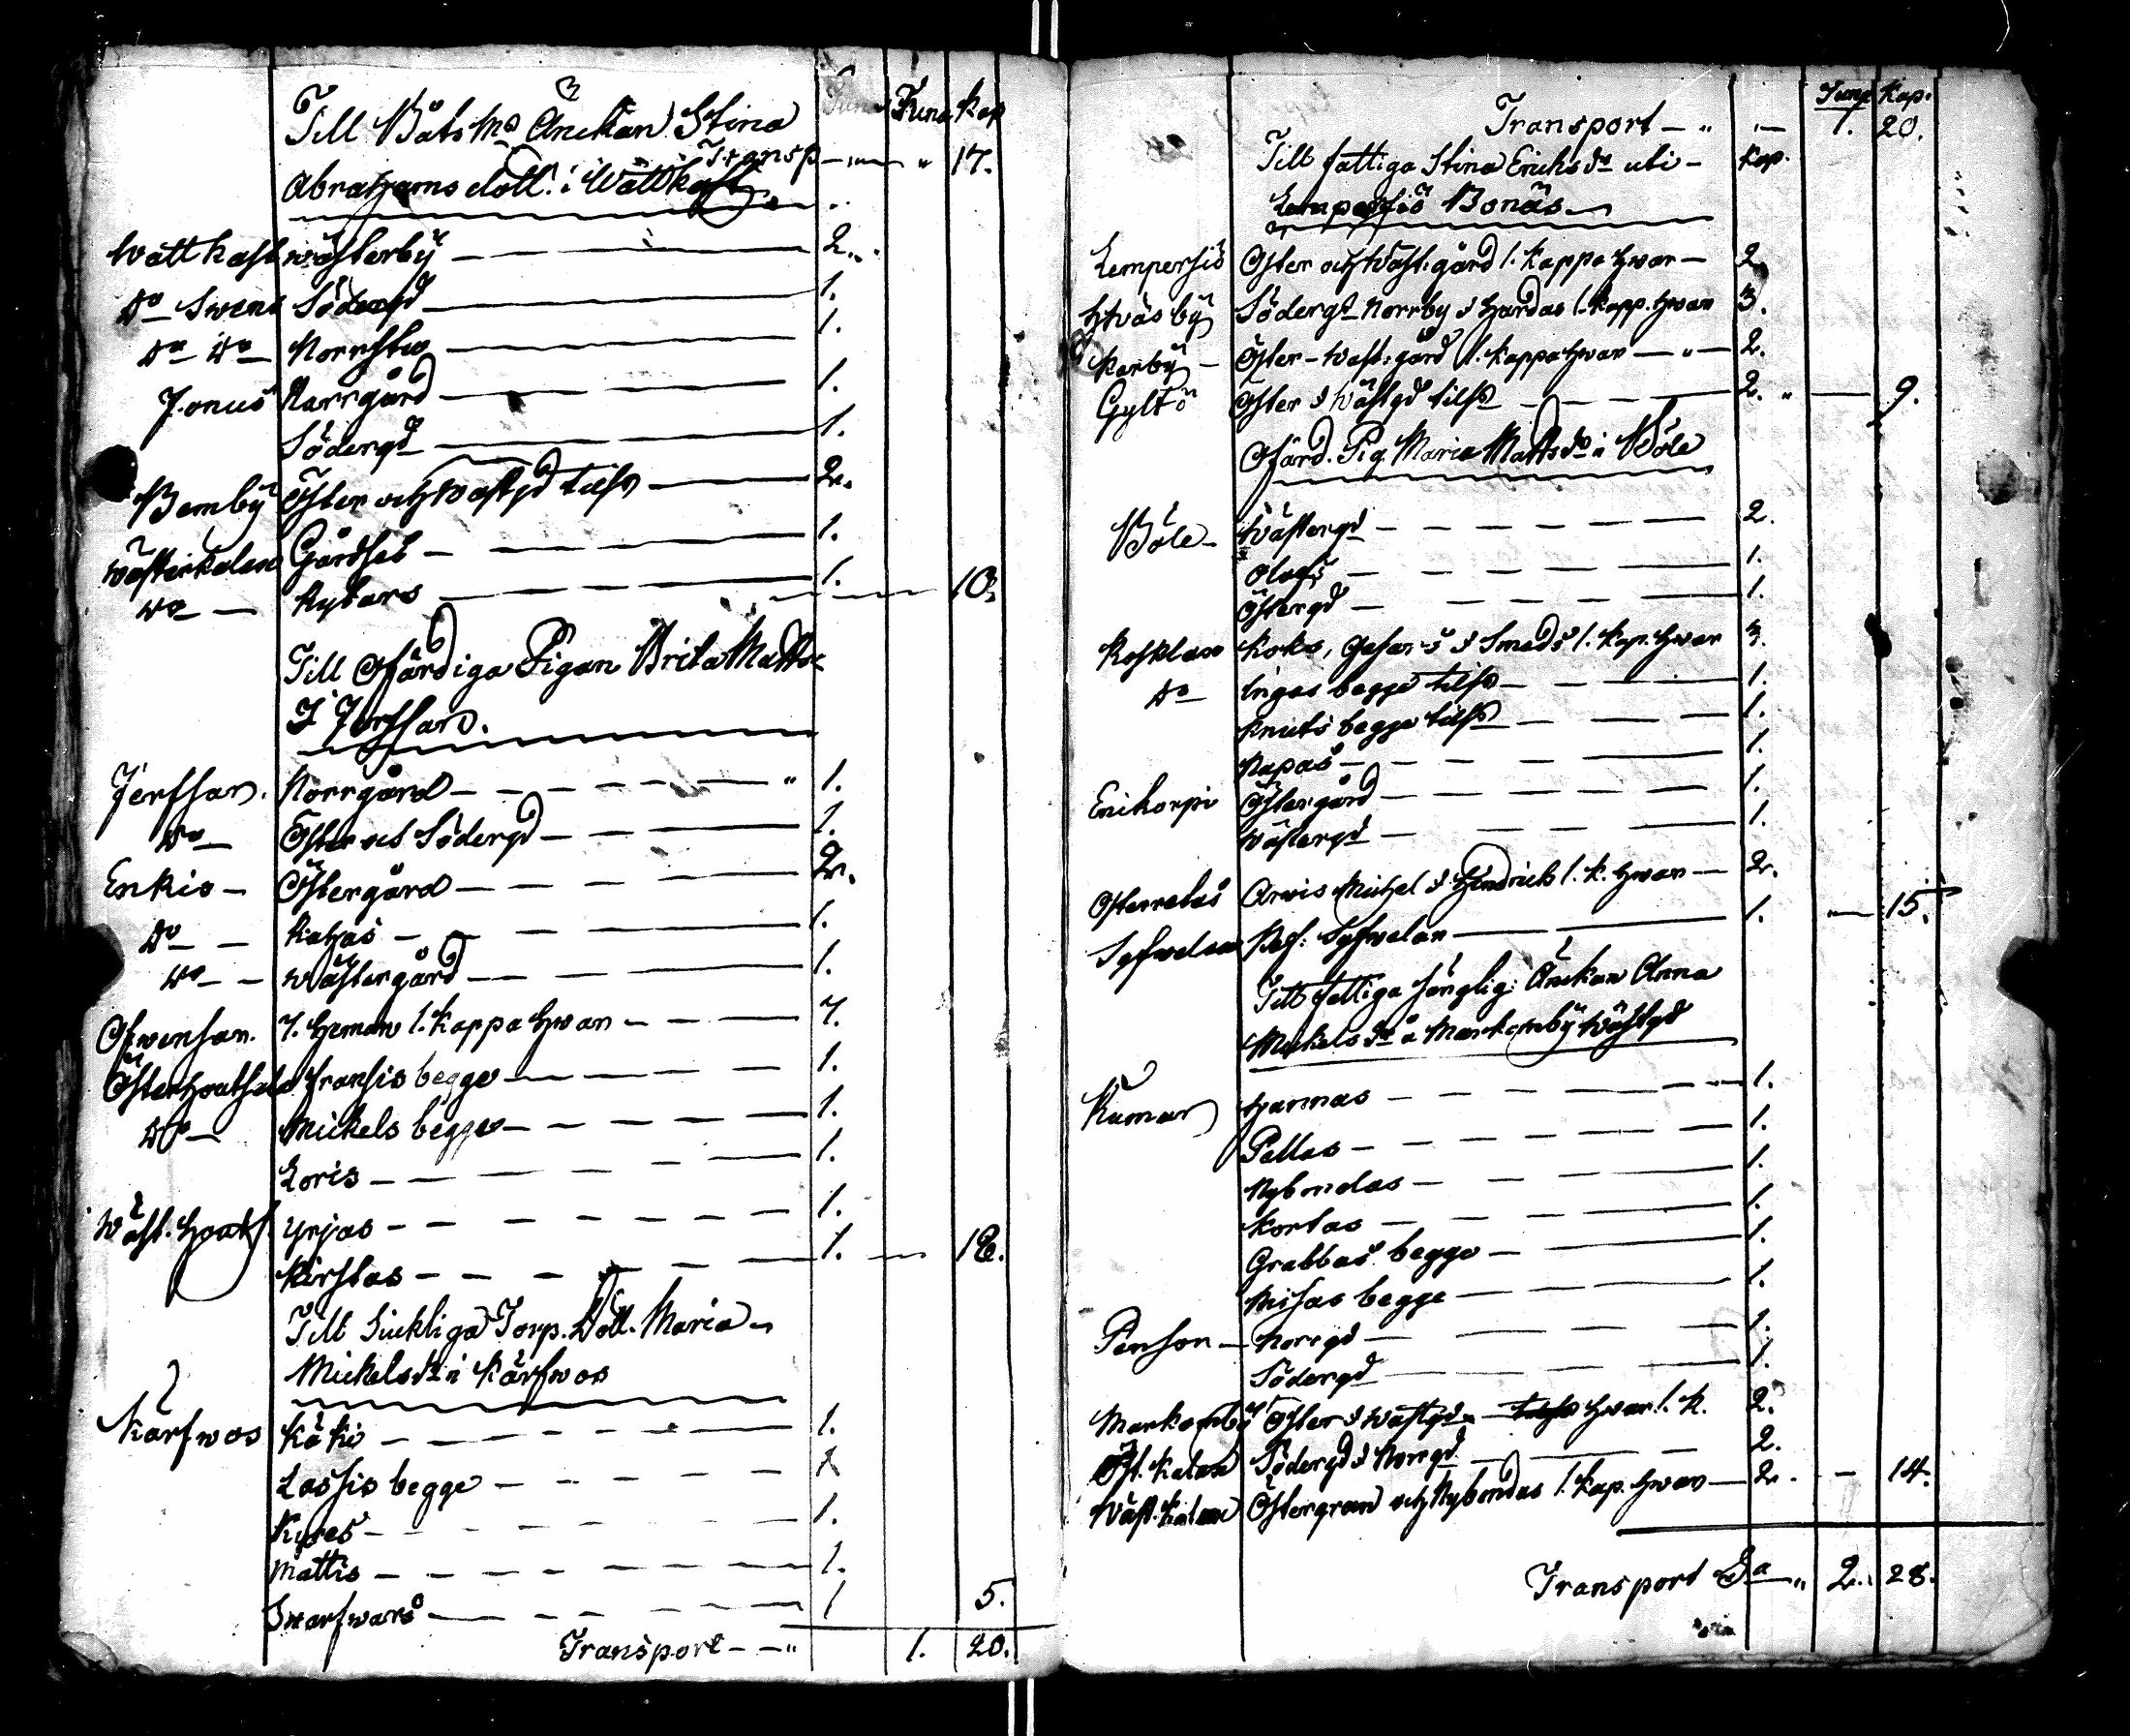 Tuna Kap
Till Båts Ms Änckan Stina
Transp — " 17.
Abrahams dott. i Wattkast
Wattkast wästerby — 2.
Do Swens Södergd — 1.
Do Do Norrstu — 1.
Jonus Norrgård — 1.
Södergd — 1.
Bemby Öster och wästgd tills — 2.
Wästerkalax Gårdses — 1.
Do — Rybars — 1. — 10.
Till Ofärdiga Pigan Brita Matts
I Jerssan.
Jerssan. Norrgård — " 1.
Do — Öster och Södergd — 1.
Enkis — Östergård — 2.
Do — Kahas — 1.
Do — Wästergård — 1.
Ofwensan. 7. Heman 1. Kappa hwar — 7.
Österhvathals Fransis begge — 1.
Do — Mickels begge — 1.
Loris — 1.
Wäst. Yrjas — 1.
Kirstas — 1. — 18.
Till Siukliga Torp. Dott. Maria
Mickelsdr i Kärfwos
Kärfwos Käki — 1.
Lassis begge — 1
Kyres — 1.
Mattis — 1.
Skarfwars — 1 5.
Transport — " 1. 20.
Tunn Kap.
Transport — " — 1. 20.
Till fattiga Stina Erichs dr uti — Kap.
Lempersiö Bonäs
Lempersiö Öster och Wäst: gård 1. Kappa hwar — 2
Hväsby Södergd Norrby & Hardas 1. Kapp. hwar 3.
Karby — Öster - Wäst: gård 1. Kappa hwar — " — 2.
Gyltö Öster & Wästgd tills — 2. " — 9.
Ofärd. Pig. Maria Matts dr i Böle
Böle — Wästergd — 2.
Olofs — 1.
Östergd — 1.
Kosklax Koks, & Smeds 1. Kap. hwar 3.
Do — Ingas begge tills — 1.
Knuts begge tills — 1.
Napas — 1.
Erikorpi Östergård — 1.
Wästergd — 1.
Österretais Arvis Michel & Hindrich 1. K. hwar — 2.
Syfwelax Syfwelax — 1. " — 15.
Till fattiga Änckan Anna
Mickels dr i Markomby Wästgd
Kumar Hannas — 1.
Pellas — 1.
Nybondas — 1.
Kortas — 1.
Grabbas begge — 1.
Misas begge — 1.
Pensor — Norrgd — 1.
Södergd — 1.
Markomby Öster & Wästgd — hwar 1. K. 2.
Öst. Kalax Södergd & Norrgd — 2.
Wäst. Kalax Östergran och Nybondas 1. Kap. hwar — 2. — 14.
Transport Sa — " 2. 28.